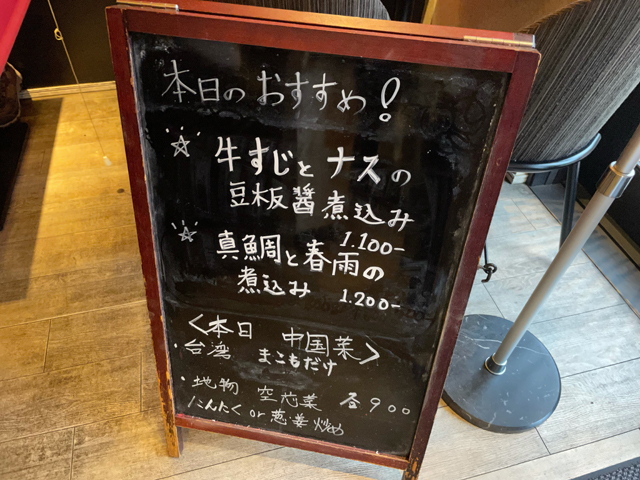 本日のおすすめ!
☆牛すじとナスの
豆板醤煮込み
1.100-
☆真鯛と春雨の
煮込み 1.200-
<本日 中国菜>
・台湾 まこもだけ
・地物 空芯菜 各900
にんたく or 葱姜炒め